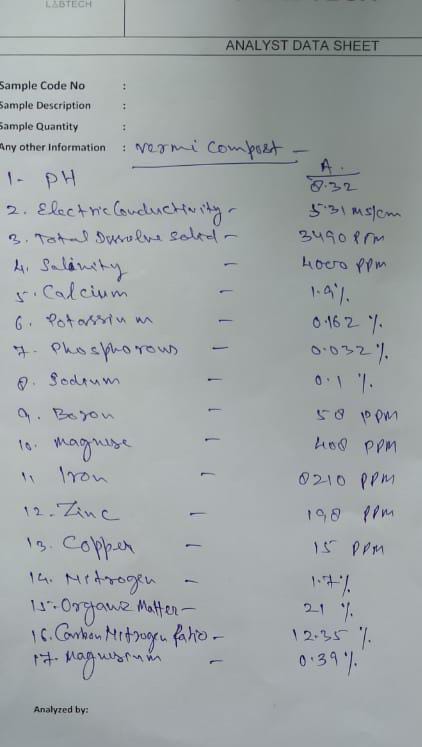 LABTECH
ANALYST DATA SHEET
Sample Code No :
Sample Description :
Sample Quantity :
Any other Information : Vermi Compost -
A.
1- PH 8.32
2. Electric Conductivity - 5.31 ms/cm
3. Total Dissolve Solid - 3490 PPM
4. Salinity - 4000 PPM
5. Calcium - 1.9%
6. Potassium - 0.162 %
7. Phosphorous - 0.032 %
8. Sodium - 0.1 %
9. Boron - 58 PPM
10. Magnise - 408 PPM
11 Iron - 8210 PPM
12. Zinc - 198 PPM
13. Copper - 15 PPM
14. Nitrogen - 1.7%
15. Organic Matter - 21 %
16. Carbon Nitrogen Ratio - 12.35 %
17. Magnesium - 0.39 %
Analyzed by: